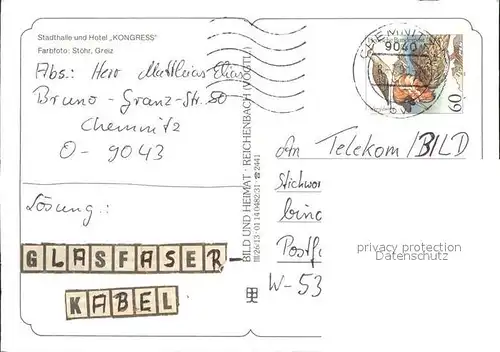 Stadthalle und Hotel „KONGRESS"
Farbfoto: Stöhr, Greiz
Abs.: Herr Matthias Elias
Bruno-Granz-Str. 80
Chemnitz
O-9043
Lösung:
GLASFASER-
KABEL
BILD UND HEIMAT · REICHENBACH (VOGTL)
III/26/13 · 01 14 0482/31 · ☎ 2441
CHEMNITZ
9040
60
An Telekom/BILD
Stichwor
Postf
W-53
privacy protection
Datenschutz